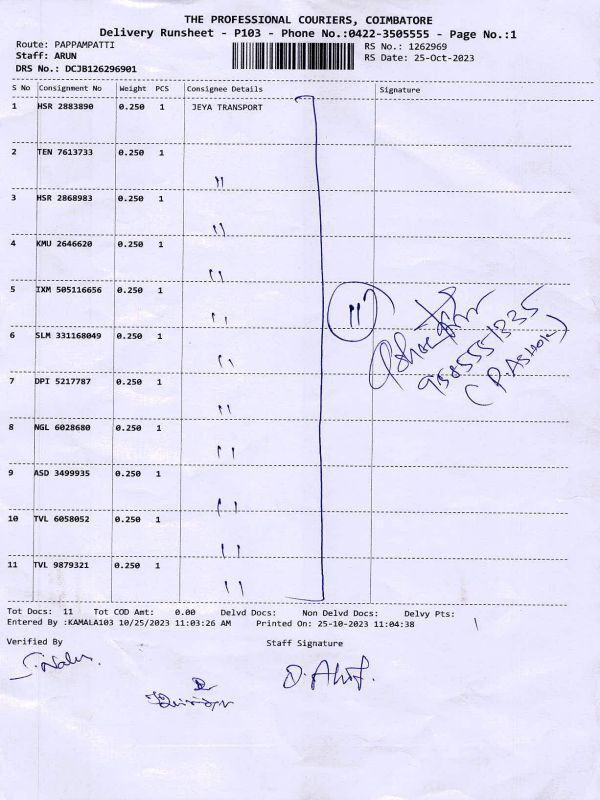 THE PROFESSIONAL COURIERS, COIMBATORE
Delivery Runsheet - P103 - Phone No.:0422-3505555 - Page No.:1
Route: PAPPAMPATTI RS No.: 1262969
Staff: ARUN RS Date: 25-Oct-2023
DRS No.: DCJB126296901
S No Consignment No Weight PCS Consignee Details Signature
1 HSR 2883890 0.250 1 JEYA TRANSPORT
2 TEN 7613733 0.250 1
"
3 HSR 2868983 0.250 1
"
4 KMU 2646620 0.250 1
"
5 IXM 505116656 0.250 1
"
11
6 SLM 331168049 0.250 1
"
(P. ASHOK)
7 DPI 5217787 0.250 1
"
8 NGL 6028680 0.250 1
"
9 ASD 3499935 0.250 1
"
10 TVL 6058052 0.250 1
"
11 TVL 9879321 0.250 1
"
Tot Docs: 11 Tot COD Amt: 0.00 Delvd Docs: Non Delvd Docs: Delvy Pts: 1
Entered By :KAMALA103 10/25/2023 11:03:26 AM Printed On: 25-10-2023 11:04:38
Verified By Staff Signature